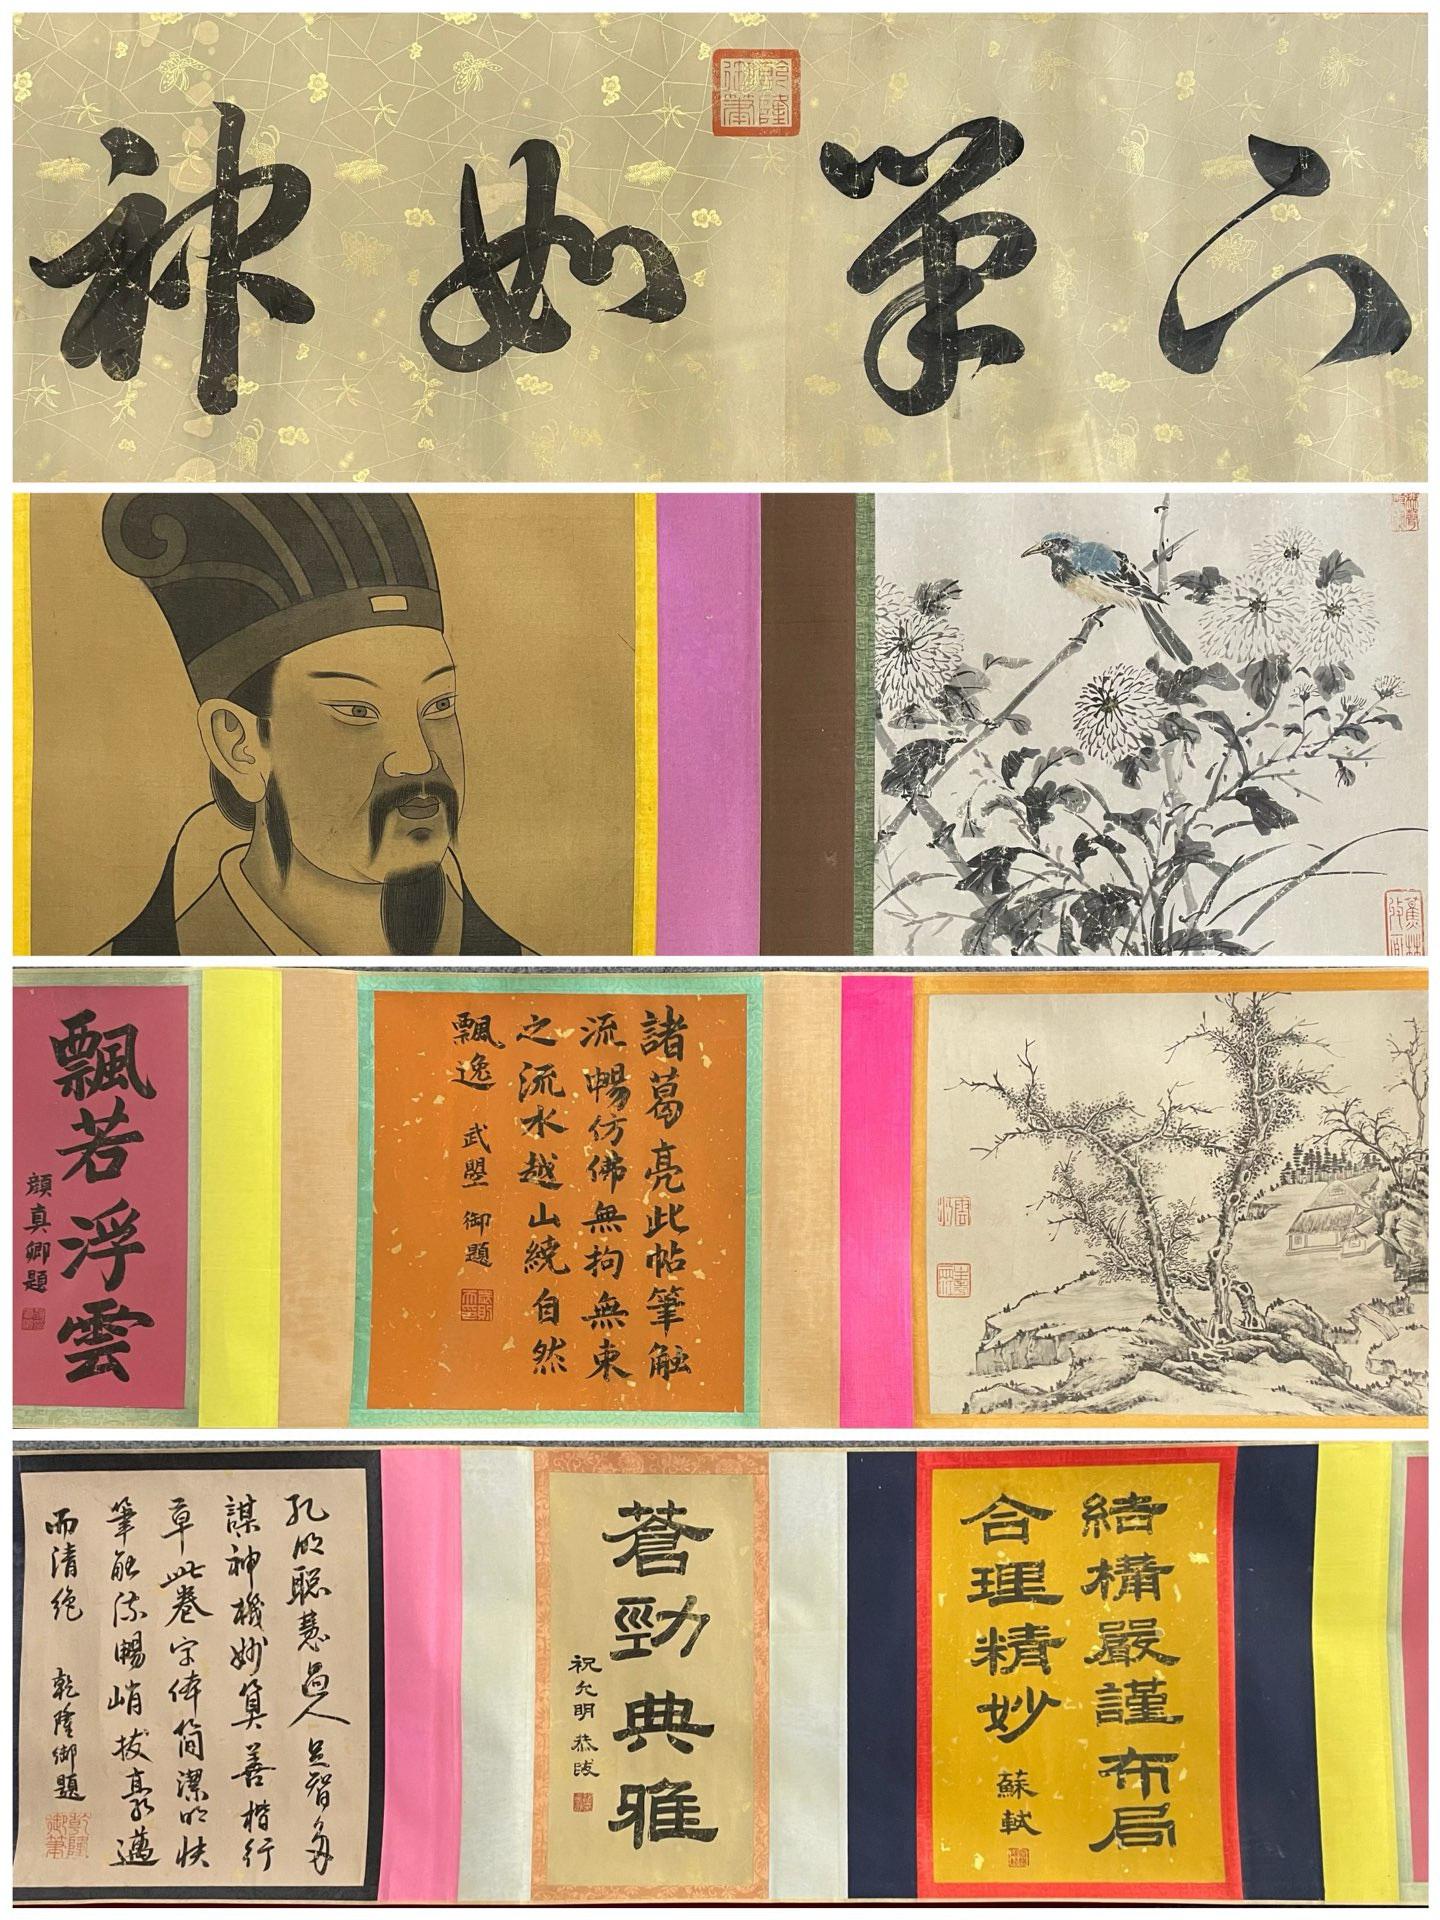 下筆如神
乾隆御筆
諸葛亮此帖筆触
流暢仿佛無拘無束
之流水越山繞自然
飄逸
武曌御題
飄若浮雲
顔真卿題
結構嚴謹布局
合理精妙
蘇軾
蒼勁典雅
祝允明恭跋
孔明聪慧過人足智多
謀神機妙算善楷行
草此卷字体简潔明快
筆触流暢峭拔豪邁
而清绝
乾隆御題
乾隆御筆